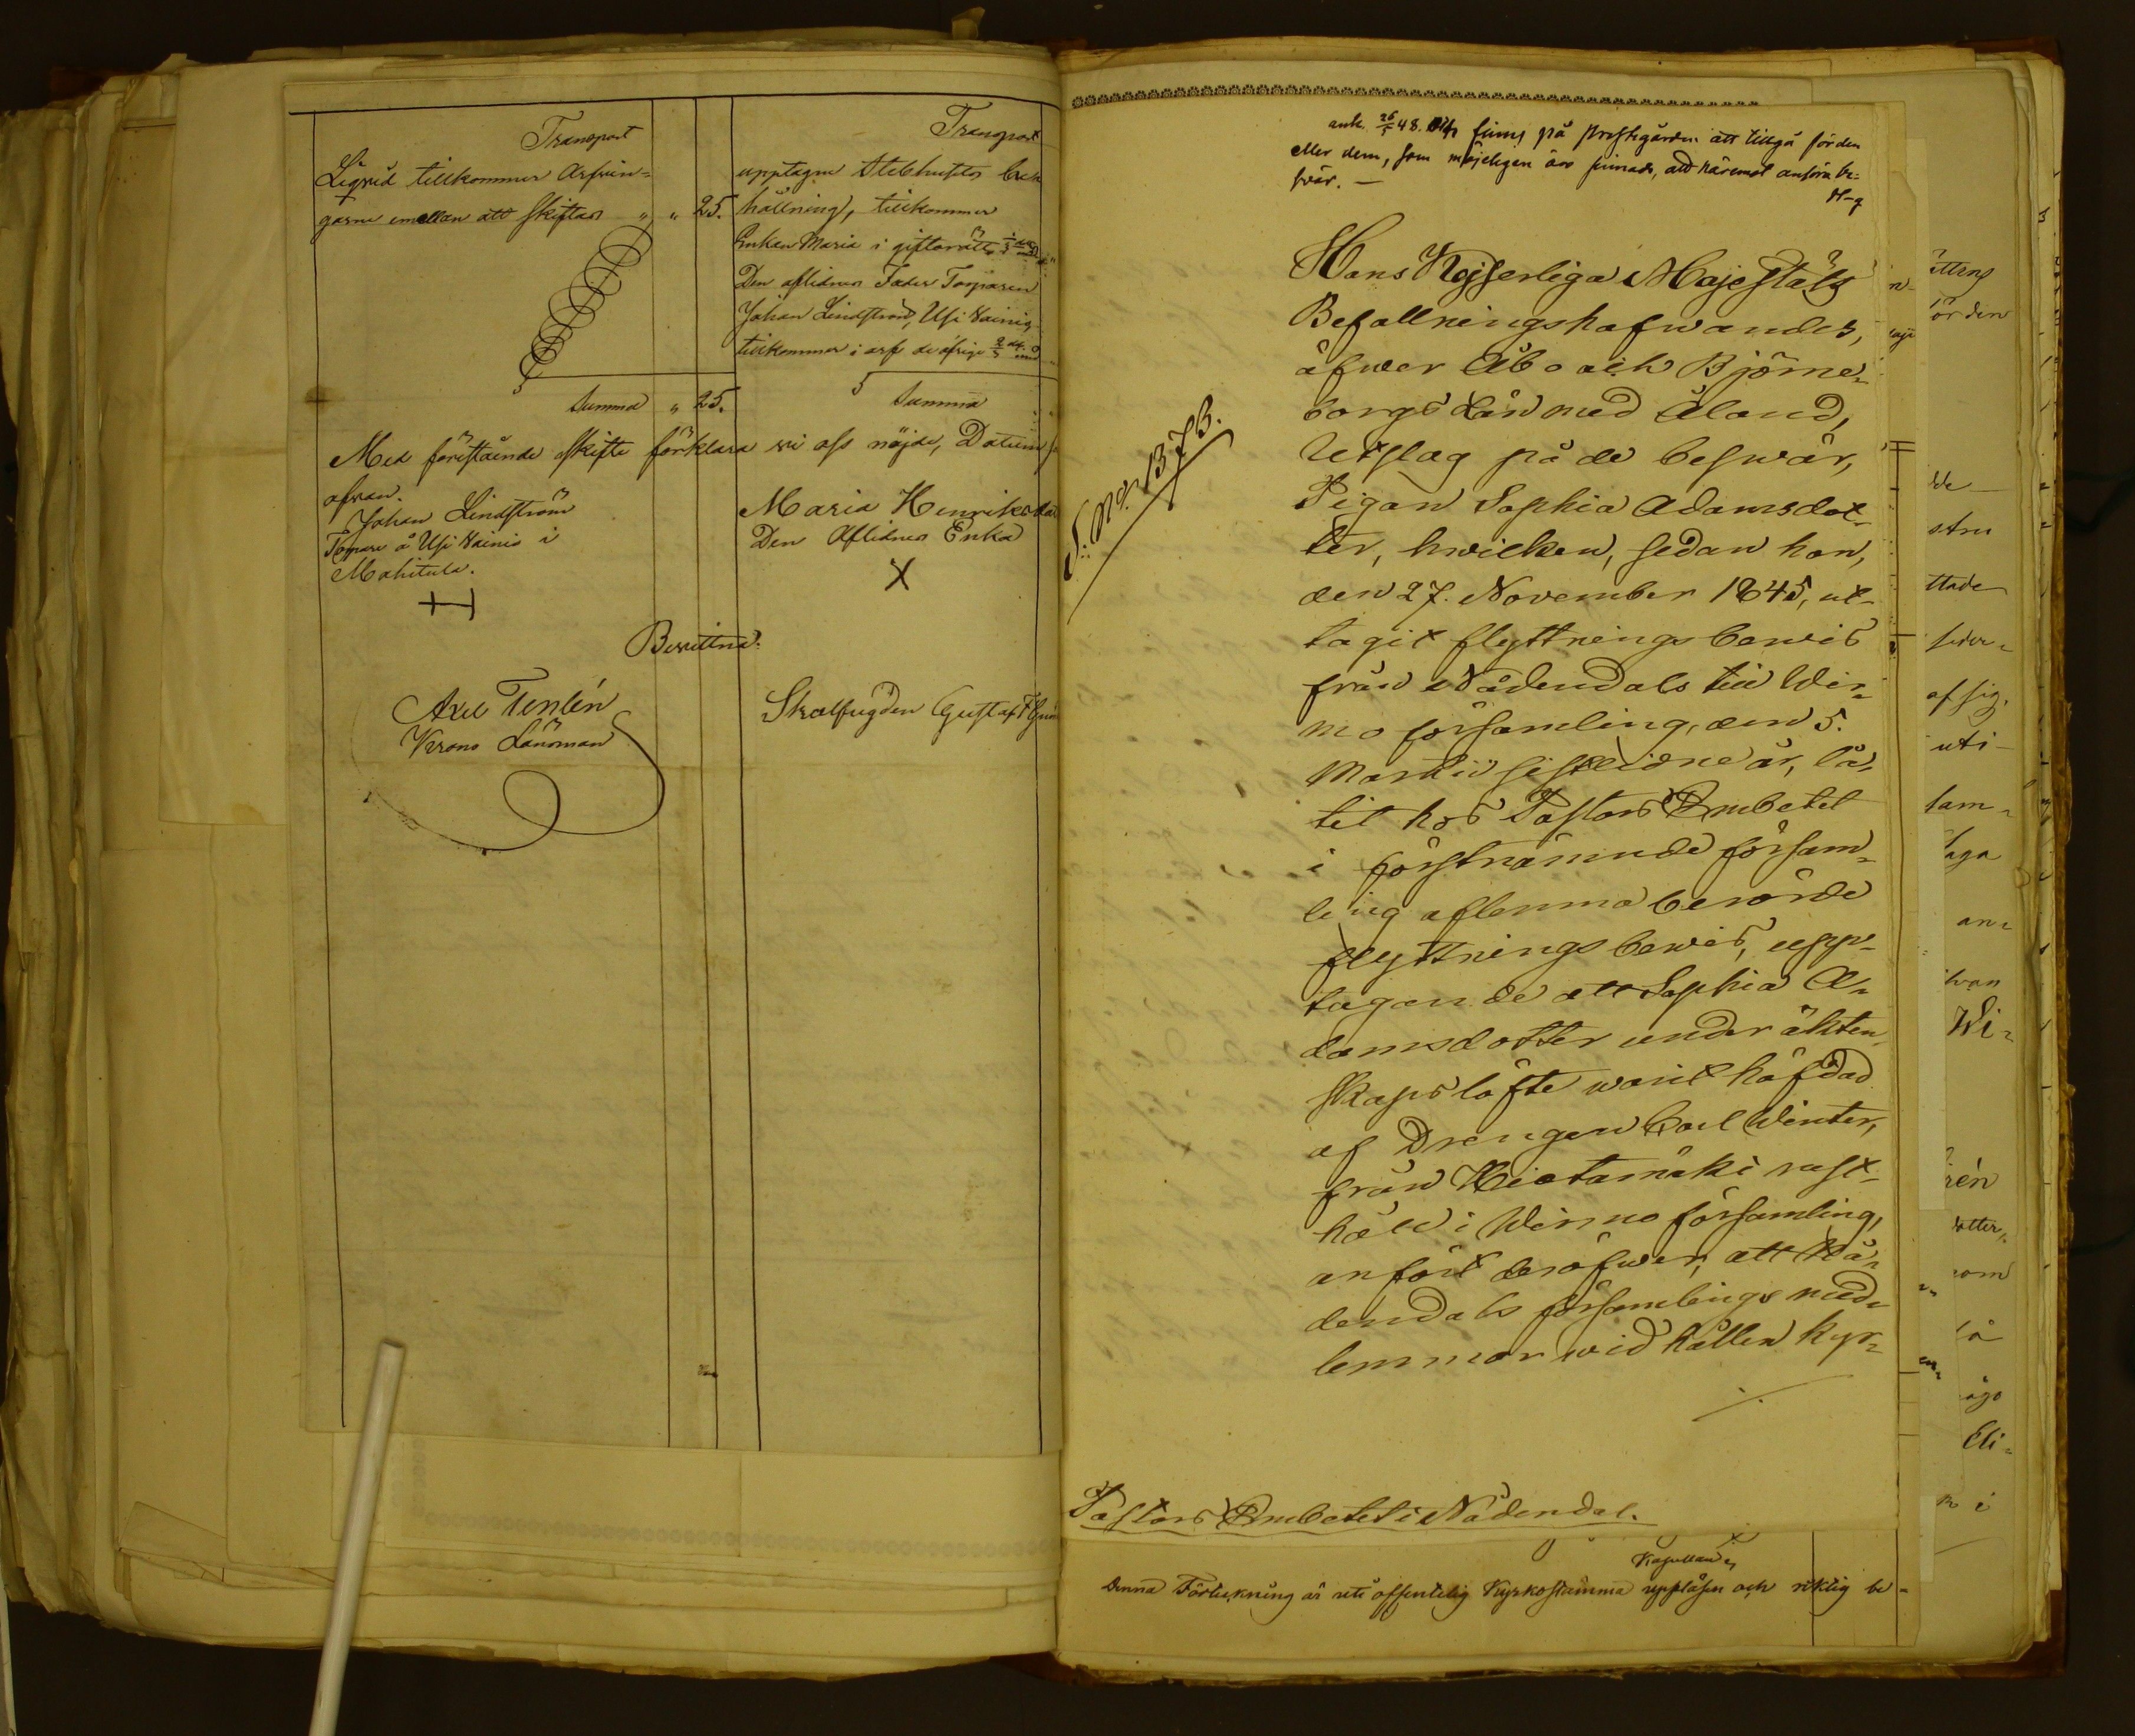 Transport
Liqvid tillkommer Arfvin-
garne emellan att skiftas " " 25.
Summa " 25.
Transport
upptagne Sterbhusets beh
hållning, tillkommer
Enkan Maria i giftorätt 1/3
Den aflidnes Fader Torparen
Johan Lindström, Usi Wainio
tillkommer i arf de öfrige 2/3
Summa
Med förestående skifte förklara vi oss nöjde, Datum
ofvan.
Johan Lindström
Torpare å Usi Wainio i
Mahitula.
Maria Henriksd
Den Aflidnes Enka
X
Bevittna:
Axel Tenlén
Krono Länsman
Skallfogden Gustaf F
ank. 26/5 48. finns på prestgården att tillgå för den
eller dem, som möjeligen äro sinnade, att häremot anföra be-
svär. —
S: No 1373.
Hans Kejserliga Majestäts
Befallningshafwandes,
öfwer Åbo och Björne-
borgs Län med Åland,
Utslag på de beswär,
Pigan Sophia Adamsdot-
ter, hwilken, sedan hon,
den 27. November 1845, ut-
tagit flyttnings bewis
från Nådendals till Wir-
mo församling, den 5.
Martii sistlidne år, lå-
tit hos Pastors Embetet
i förstnämnde försam-
ling aflemna berörde
flyttnings bewis, upp-
tagande att Sophia A-
damsdotter under äkten
skaps löfte warit häfdad
af Drengen Carl Winter,
från Hietamäki rust-
håll i Wirmo församling,
anfört deröfwer, att Nå-
dendals församlings med-
lemmar wid hållen kyr-
Pastors Embetet i Nådendal.
Denna Förteckning är uti offentelig Kyrkostämma uppläsen och riktig be-